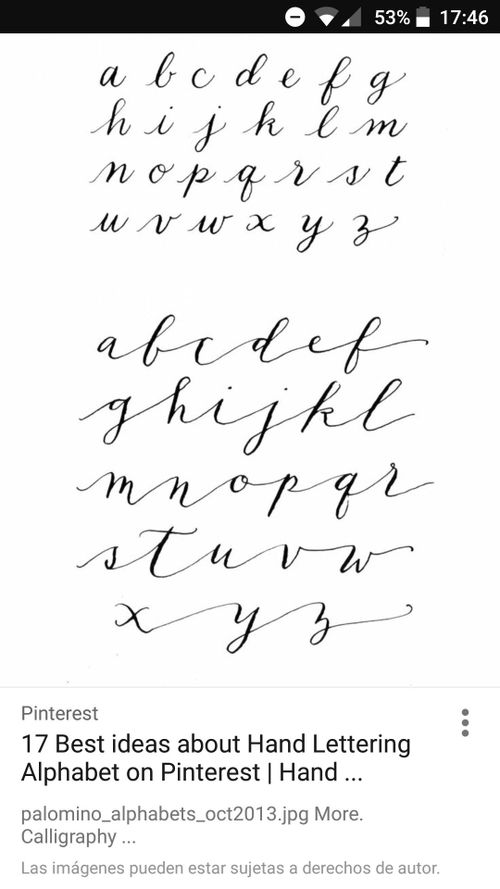 53% 17:46
a b c d e f g
h i j k l m
n o p q r s t
u v w x y z
a b c d e f
g h i j k l
m n o p q r
s t u v w
x y z
Pinterest
17 Best ideas about Hand Lettering
Alphabet on Pinterest | Hand ...
palomino_alphabets_oct2013.jpg More.
Calligraphy ...
Las imágenes pueden estar sujetas a derechos de autor.